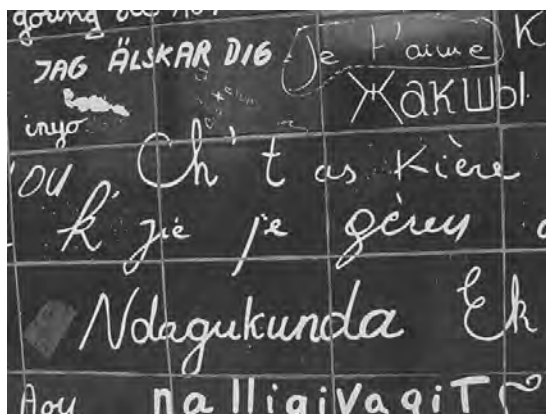 JAG ÄLSKAR DIG Je t'aime K
Жакшы
inyo
OU Ch' t as Kière
k' zié je gèrey
Ndagukunda Ek
nalligivagiT